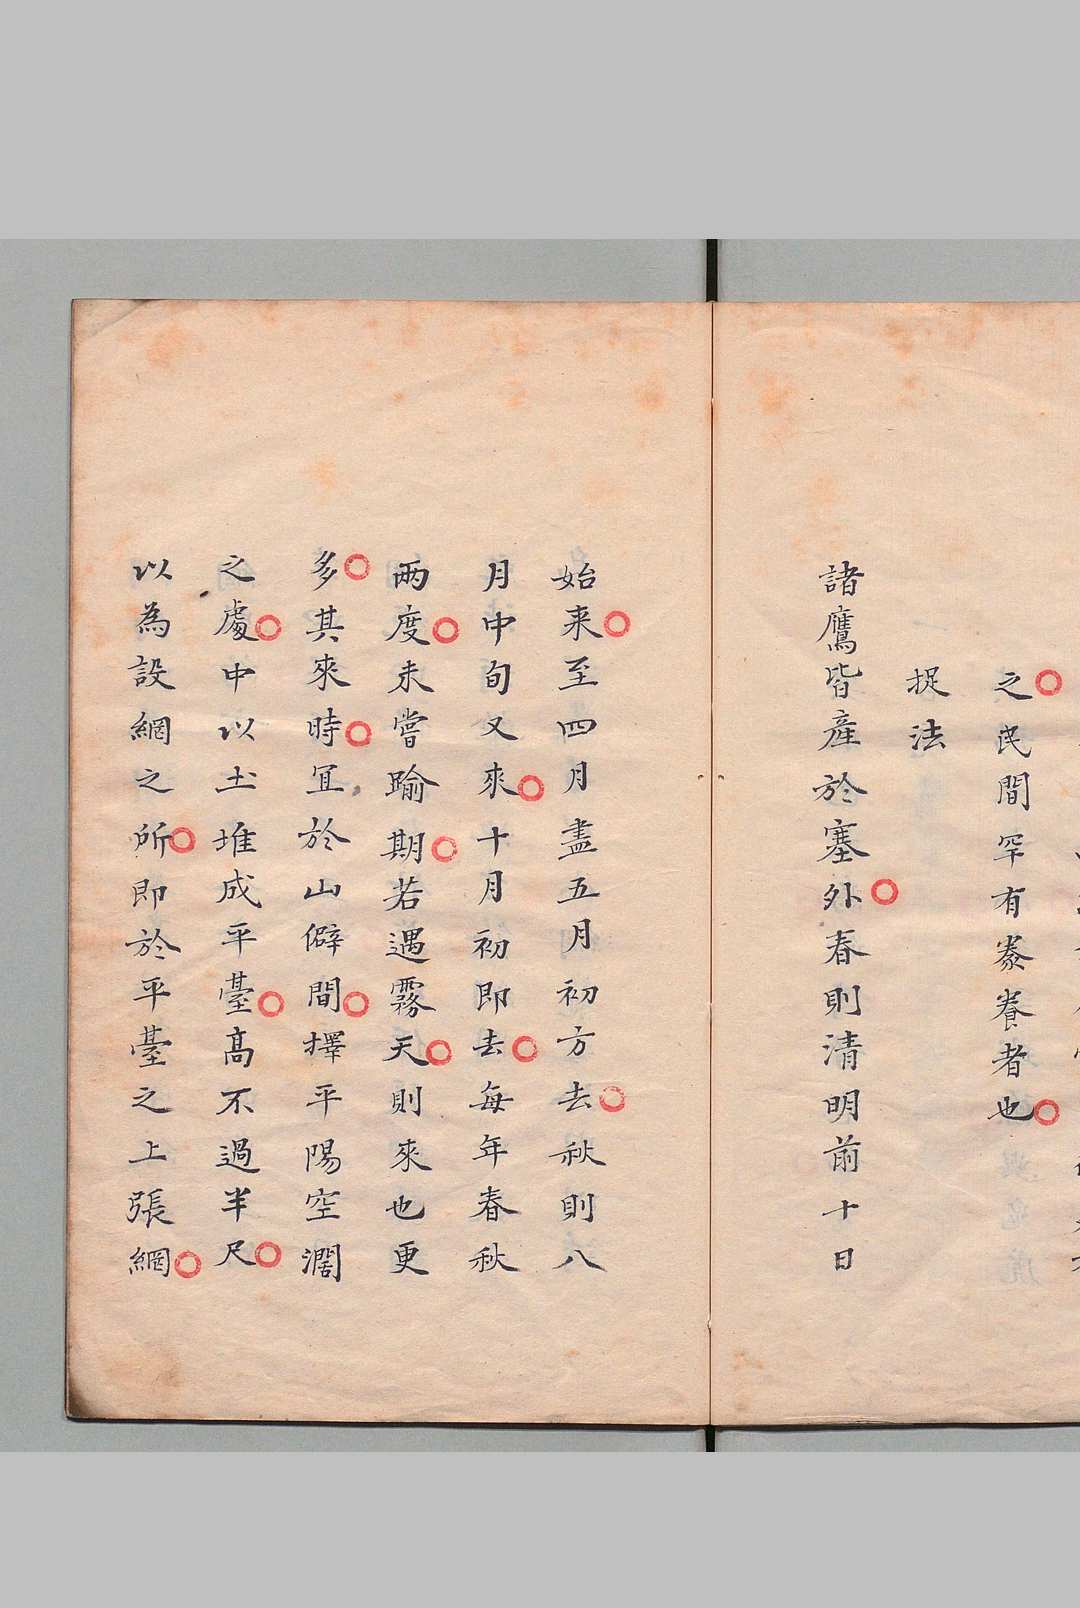 之民間罕有豢養者也
捉法
諸鷹皆產於塞外春則清明前十日
始来至四月盡五月初方去秋則八
月中旬又來十月初即去每年春秋
兩度未嘗踰期若遇霧天則來也更
多其來時冝於山僻間擇平陽空濶
之處中以土堆成平臺高不過半尺
以為設網之所即於平臺之上張網